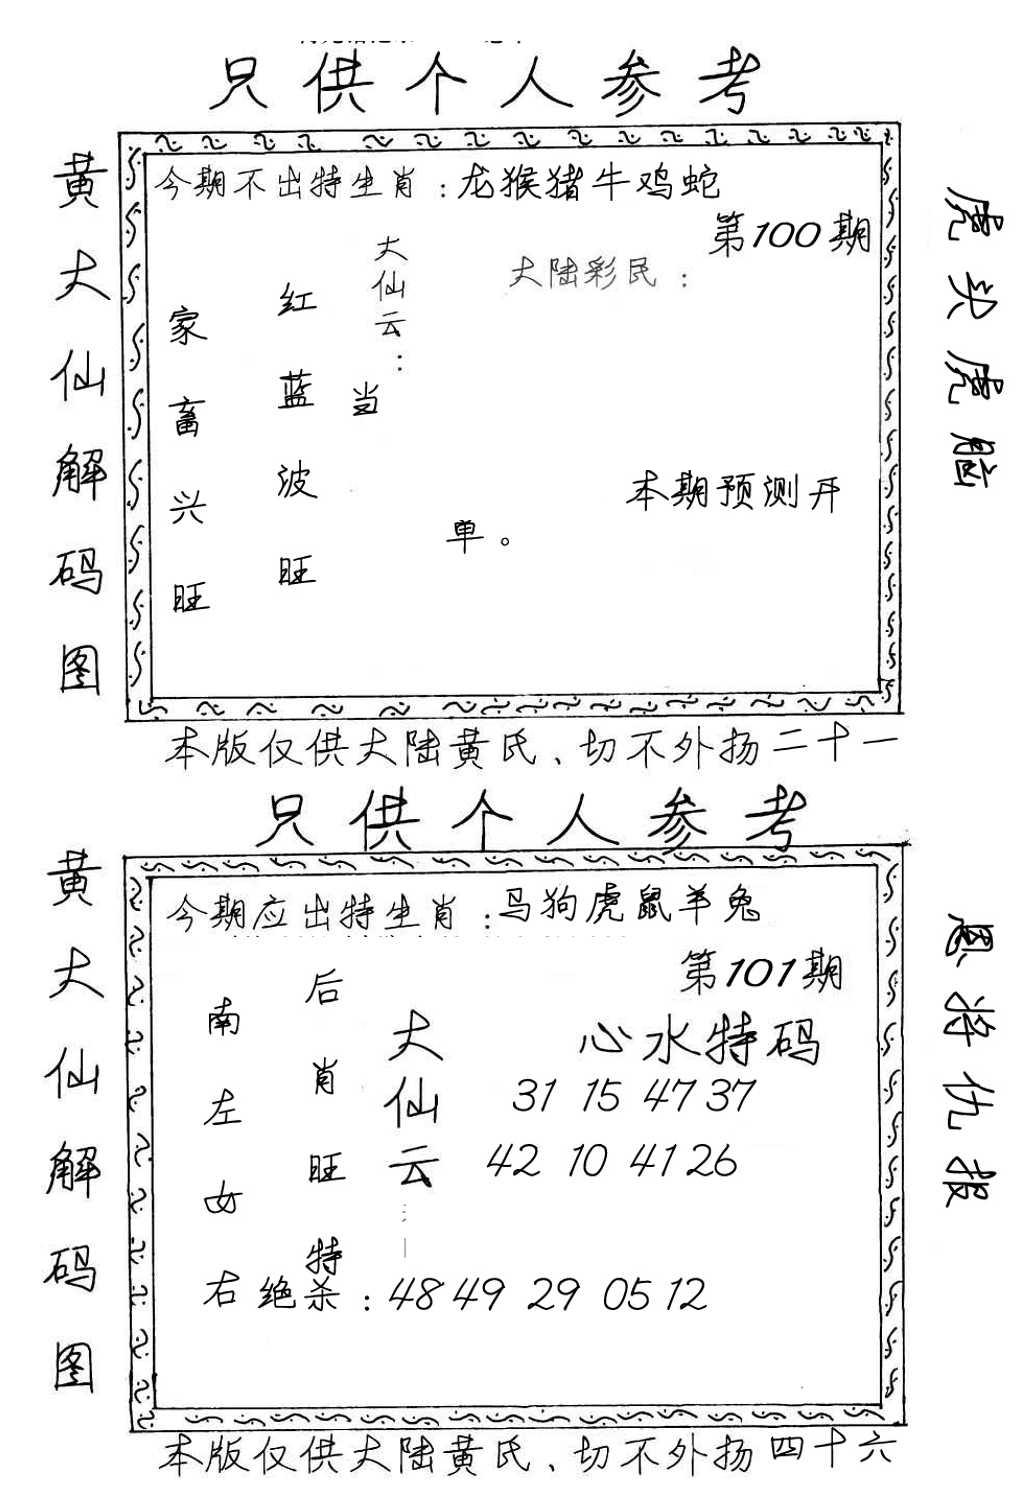 只供个人参考
黄大仙解码图
今期不出特生肖：龙猴猪牛鸡蛇
第100期
大陆彩民：
大仙云：
红蓝波旺
家畜兴旺
当
本期预测开
单。
虎头虎脑
本版仅供大陆黄氏、切不外扬二十一
只供个人参考
黄大仙解码图
今期应出特生肖：马狗虎鼠羊兔
第101期
心水特码
后肖旺特
南左女右
大仙云
31 15 47 37
42 10 41 26
绝杀：48 49 29 05 12
恩将仇报
本版仅供大陆黄氏、切不外扬四十六